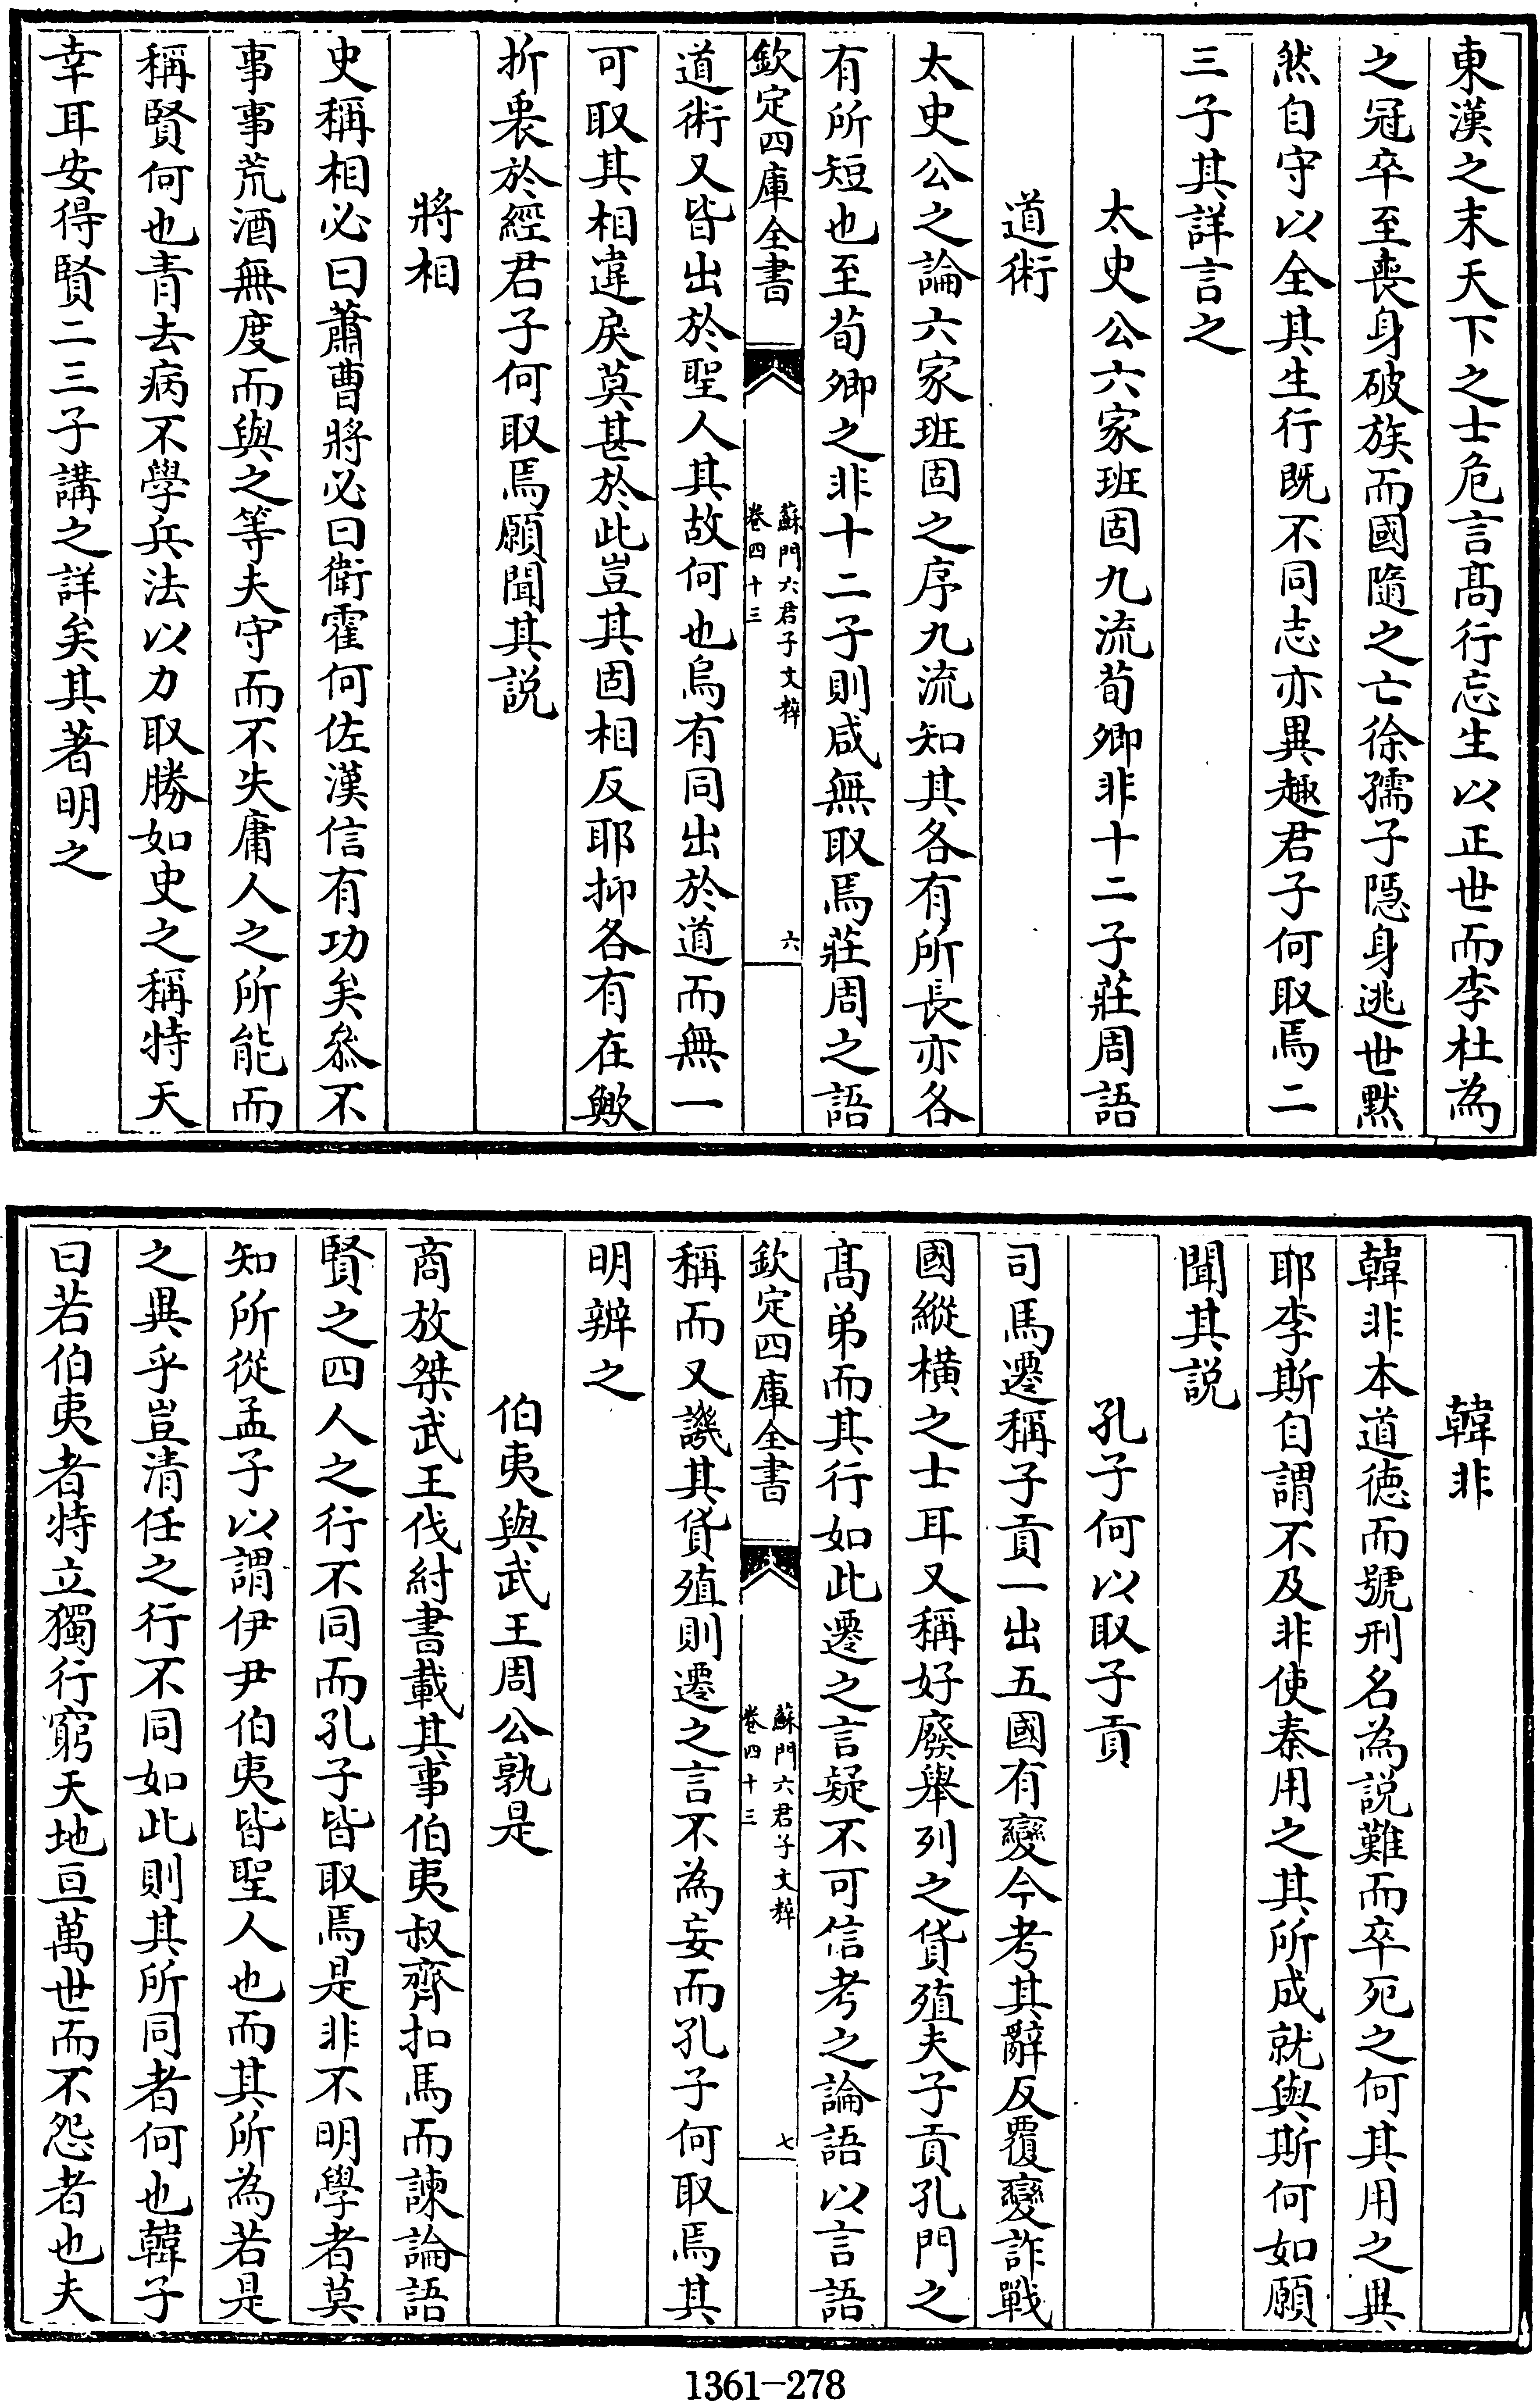 東漢之末天下之士危言髙行忘生以正世而李杜為
之冠卒至喪身破族而國隨之亡徐孺子隠身逃世黙
然自守以全其生行既不同志亦異趣君子何取焉二
三子其詳言之
太史公六家班固九流荀卿非十二子莊周語
道術
太史公之論六家班固之序九流知其各有所長亦各
有所短也至荀卿之非十二子則咸無取焉莊周之語
欽定四庫全書
蘇門六君子文粹
卷四十三
六
道術又皆出於聖人其故何也烏有同出於道而無一
可取其相違戾莫甚於此豈其固相反耶抑各有在歟
折衷於經君子何取焉願聞其説
將相
史稱相必曰蕭曹將必曰衛霍何佐漢信有功矣叅不
事事荒酒無度而與之等夫守而不失庸人之所能而
稱賢何也青去病不學兵法以力取勝如史之稱特天
幸耳安得賢二三子講之詳矣其著明之
韓非
韓非本道徳而號刑名為説難而卒死之何其用之異
耶李斯自謂不及非使秦用之其所成就與斯何如願
聞其説
孔子何以取子貢
司馬遷稱子貢一出五國有變今考其辭反覆變詐戰
國縱橫之士耳又稱好廢舉列之貨殖夫子貢孔門之
髙弟而其行如此遷之言疑不可信考之論語以言語
欽定四庫全書
蘇門六君子文粹
卷四十三
七
稱而又譏其貨殖則遷之言不為妄而孔子何取焉其
明辨之
伯夷與武王周公孰是
商放桀武王伐紂書載其事伯夷叔齊扣馬而諫論語
賢之四人之行不同而孔子皆取焉是非不明學者莫
知所從孟子以謂伊尹伯夷皆聖人也而其所為若是
之異乎豈清任之行不同如此則其所同者何也韓子
曰若伯夷者特立獨行窮天地亘萬世而不怨者也夫
1361-278